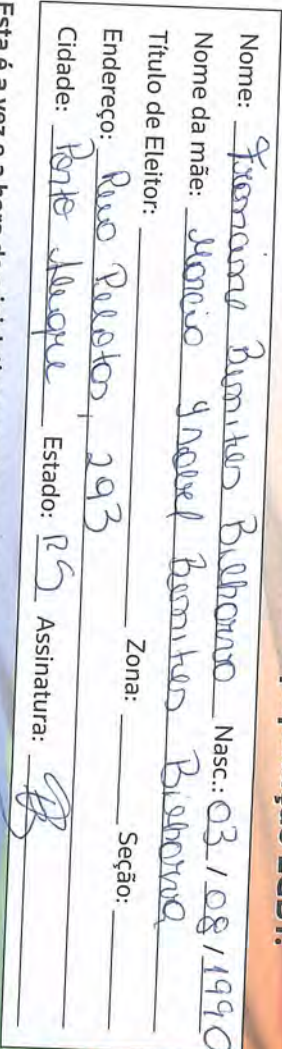 LGBT:
Nome: Franciane Benites Bilharva Nasc.: 03 / 08 / 1990
Nome da mãe: Marcia Izabel Benites Bilharva
Título de Eleitor: Zona: Seção:
Endereço: Rua Pelotas, 293
Cidade: Porto Alegre Estado: RS Assinatura:
Esta é a vez e a hora da